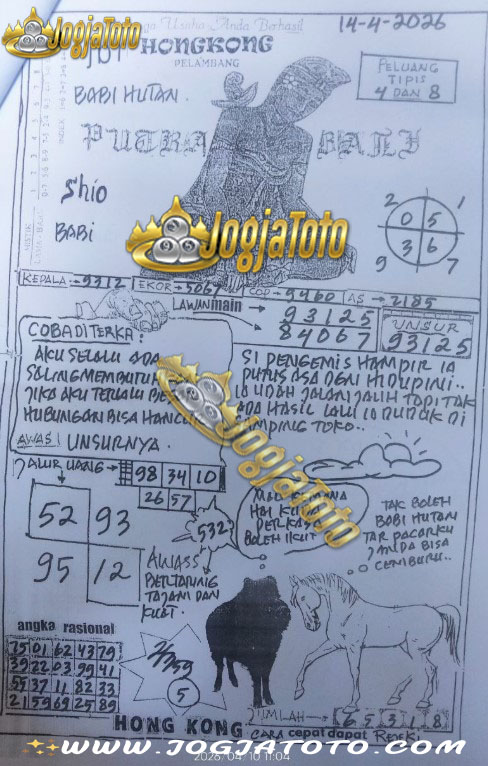 Usaha Anda Berhasil
14-4-2026
JOGJATOTO
HONGKONG
PELAMBANG
PELUANG
TIPIS
4 DAN 8
BABI HUTAN
PUTRA BALI
Shio
BABI
2 1
0 5
3 6
9 7
JOGJATOTO
KEPALA → 9312 EKOR → 5067 COP → 9460 AS → 2185
LAWAN main → 93125
→ 84067
UNSUR
93125
COBA DITERKA:
AKU SELALU ADA
SALING MEMBUTUH
JIKA AKU TERLALU BE
HUBUNGAN BISA HANCU
AWAS! UNSURNYA.
SI PENGEMIS HAMPIR IA
PUTUS ASA DGN HIDUP INI..
IA UDAH JALAN JAUH TAPI TAK
ADA HASIL LALU IA DUDUK DI
SAMPING TOKO..
JALUR UANG → 98 34 10
26 57
JOGJATOTO
52 93
95 12
532
MAU KEMANA
HAI KUDA
PERKASA
BOLEH IKUT
TAK BOLEH
BABI HUTAN
TAR PACARKU
JANDA BISA
CEMBURU..
AWASS
BERTARUNG
TAJAM DAN
KUAT.
angka rasional
75 01 62 43 79
39 22 03 99 41
55 37 11 82 33
21 59 69 25 89
5
JUMLAH → 6 5 3 1 8
HONG KONG
CARA cepat dapat REJEKI
2026/04/10 11:04
WWW.JOGJATOTO.COM